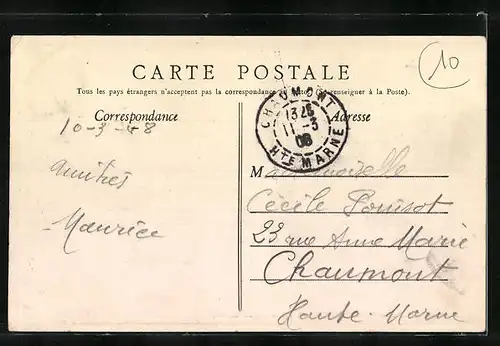 10
CARTE POSTALE
Tous les pays étrangers n'acceptent pas la correspondance au (Se renseigner à la Poste).
Correspondance
Adresse
CHAUMONT
11-3
08
HTE MARNE
amitiés
Maurice
Mademoiselle
Cécile
23 rue Anne Marie
Chaumont
Haute-Marne